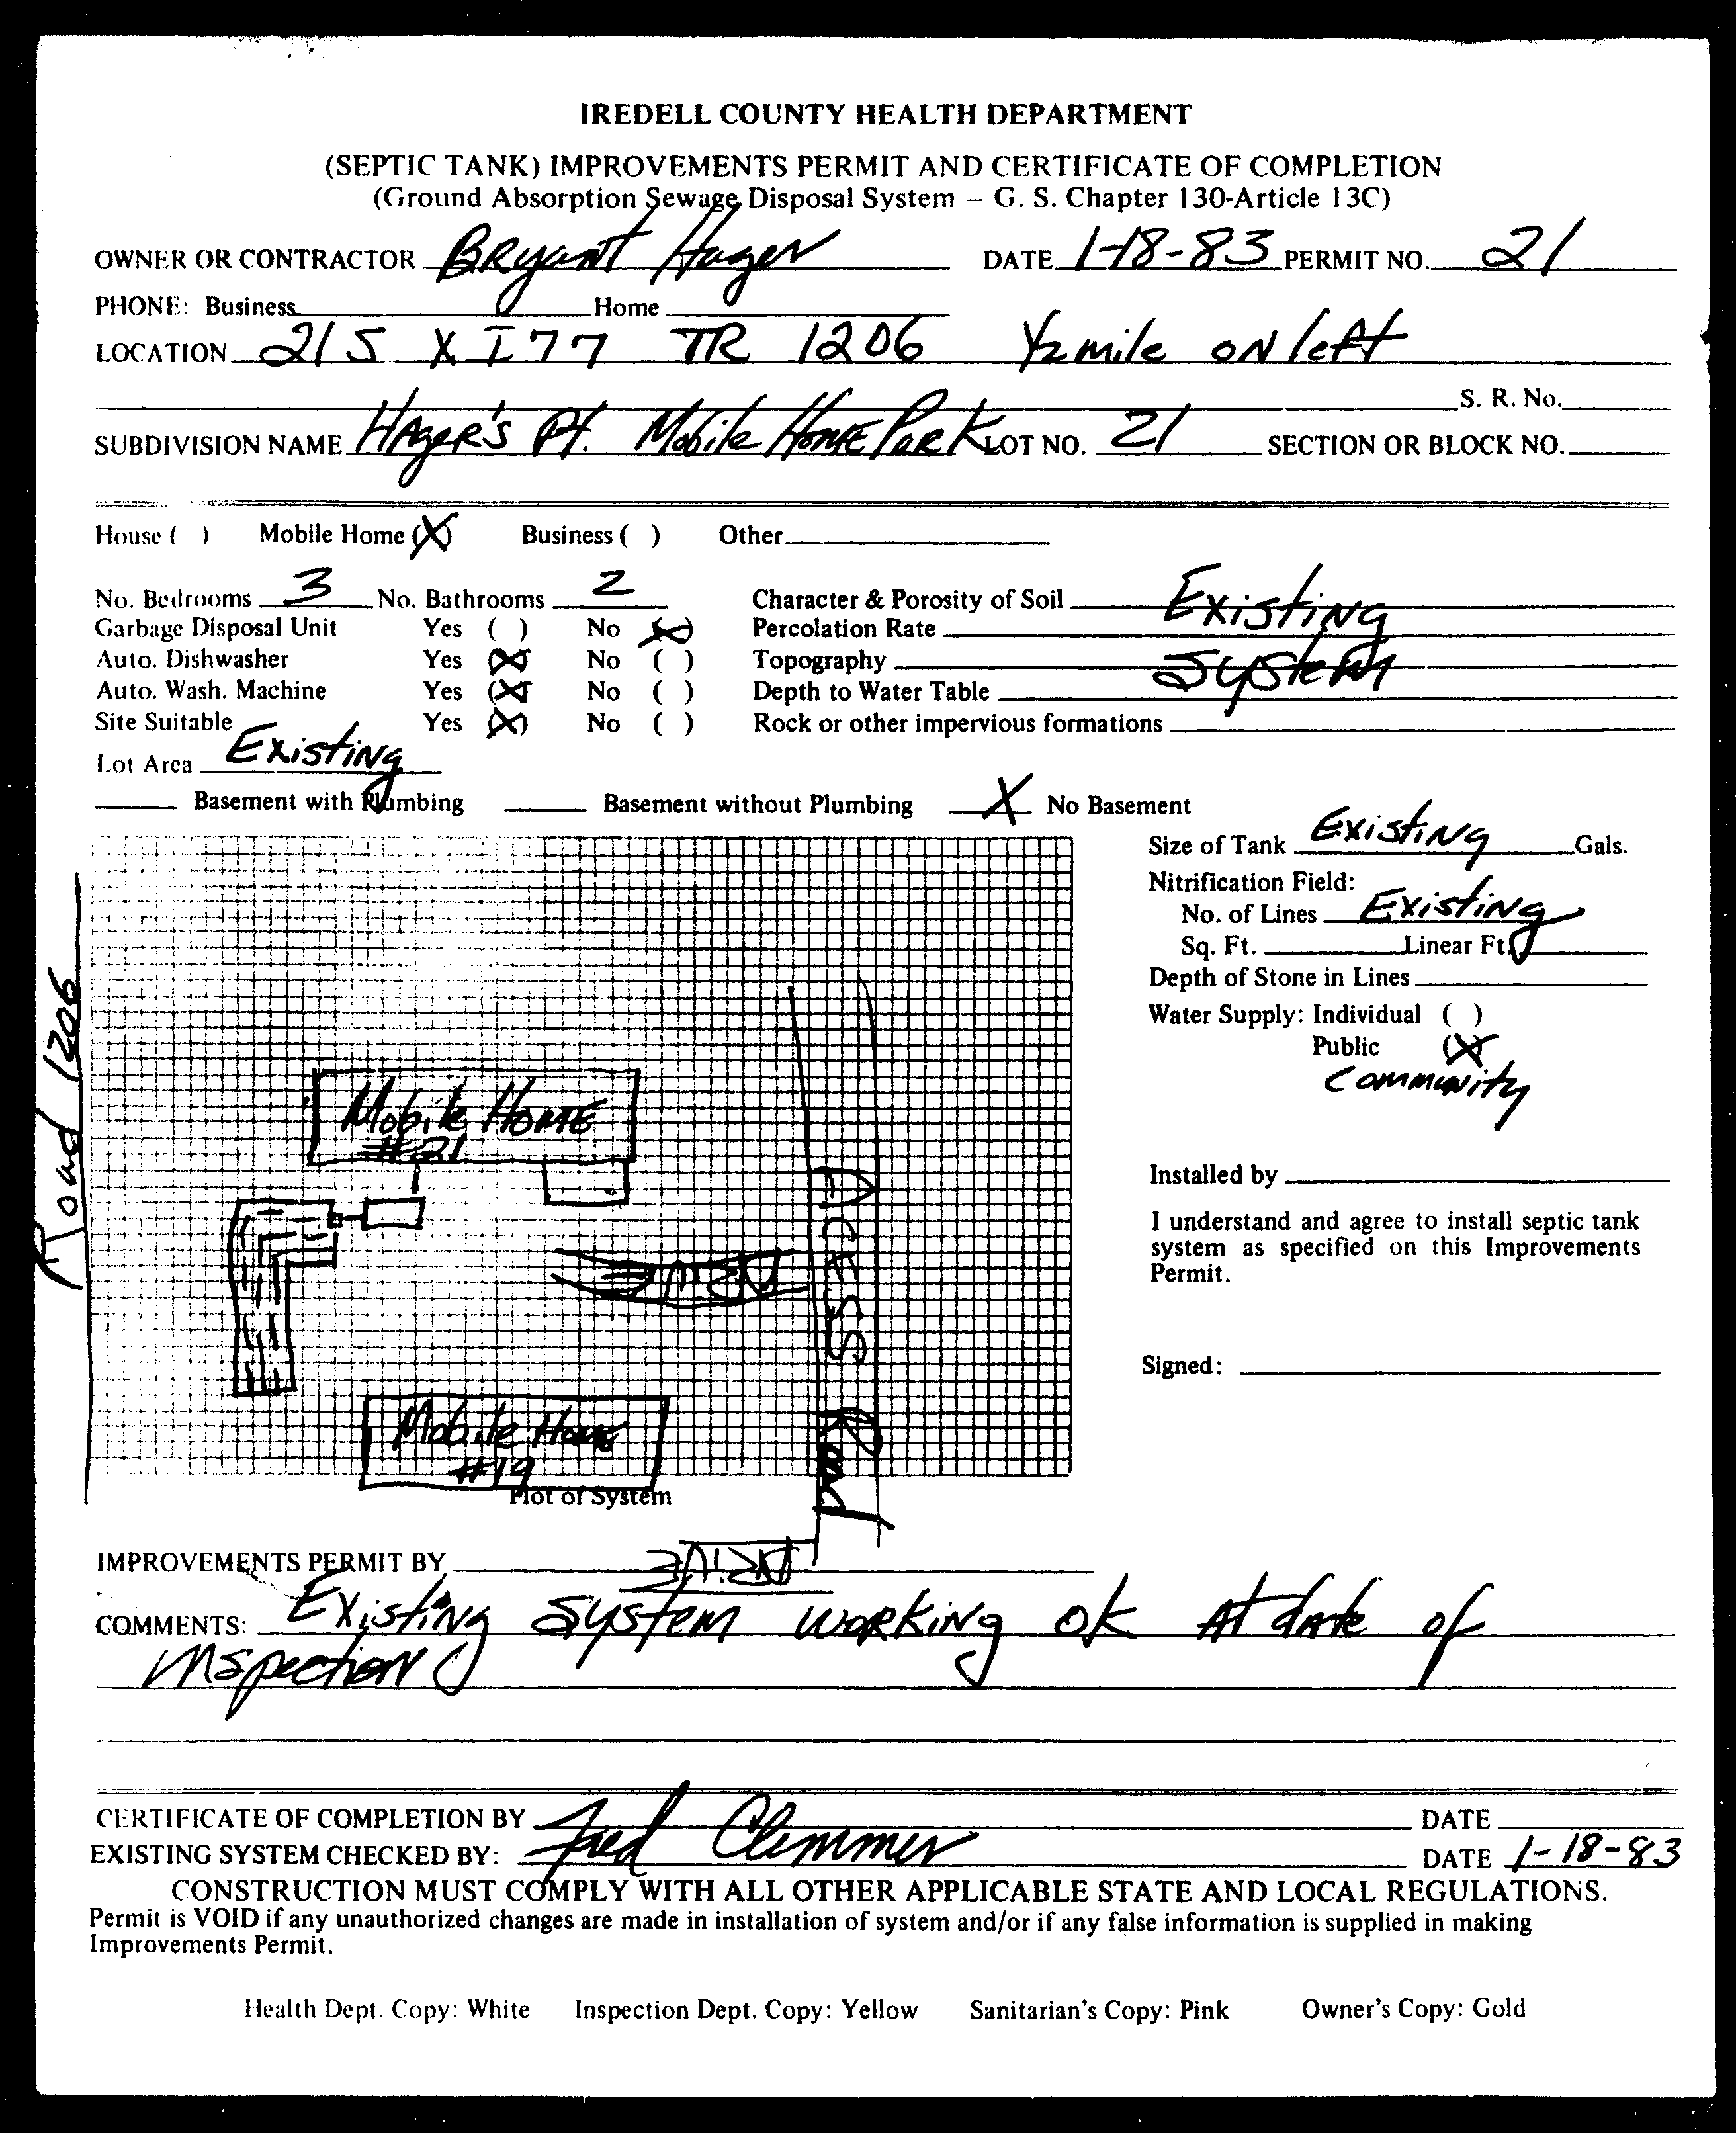 IREDELL COUNTY HEALTH DEPARTMENT
(SEPTIC TANK) IMPROVEMENTS PERMIT AND CERTIFICATE OF COMPLETION
(Ground Absorption Sewage Disposal System – G. S. Chapter 130-Article 13C)
OWNER OR CONTRACTOR Bryant Hager DATE 1-18-83 PERMIT NO. 21
PHONE: Business Home
LOCATION 21 S X I 77 TR 1206 1/2 mile on left
S. R. No.
SUBDIVISION NAME Hager's Pt. Mobile Home Park LOT NO. 21 SECTION OR BLOCK NO.
House ( ) Mobile Home (X) Business ( ) Other
No. Bedrooms 3 No. Bathrooms 2 Character & Porosity of Soil Existing
Garbage Disposal Unit Yes ( ) No (X) Percolation Rate
Auto. Dishwasher Yes (X) No ( ) Topography System
Auto. Wash. Machine Yes (X) No ( ) Depth to Water Table
Site Suitable Yes (X) No ( ) Rock or other impervious formations
Lot Area Existing
Basement with Plumbing Basement without Plumbing X No Basement
Size of Tank Existing Gals.
Nitrification Field:
No. of Lines Existing
Sq. Ft. Linear Ft.
Depth of Stone in Lines
Water Supply: Individual ( )
Public (X)
Community
Road 1206
Mobile Home
#21
Drive
Access Road
Mobile Home
#19
Plot of System
Drive
Installed by
I understand and agree to install septic tank
system as specified on this Improvements
Permit.
Signed:
IMPROVEMENTS PERMIT BY
COMMENTS: Existing System working ok At date of
inspection
CERTIFICATE OF COMPLETION BY DATE
EXISTING SYSTEM CHECKED BY: Fred Clemmer DATE 1-18-83
CONSTRUCTION MUST COMPLY WITH ALL OTHER APPLICABLE STATE AND LOCAL REGULATIONS.
Permit is VOID if any unauthorized changes are made in installation of system and/or if any false information is supplied in making
Improvements Permit.
Health Dept. Copy: White Inspection Dept. Copy: Yellow Sanitarian's Copy: Pink Owner's Copy: Gold